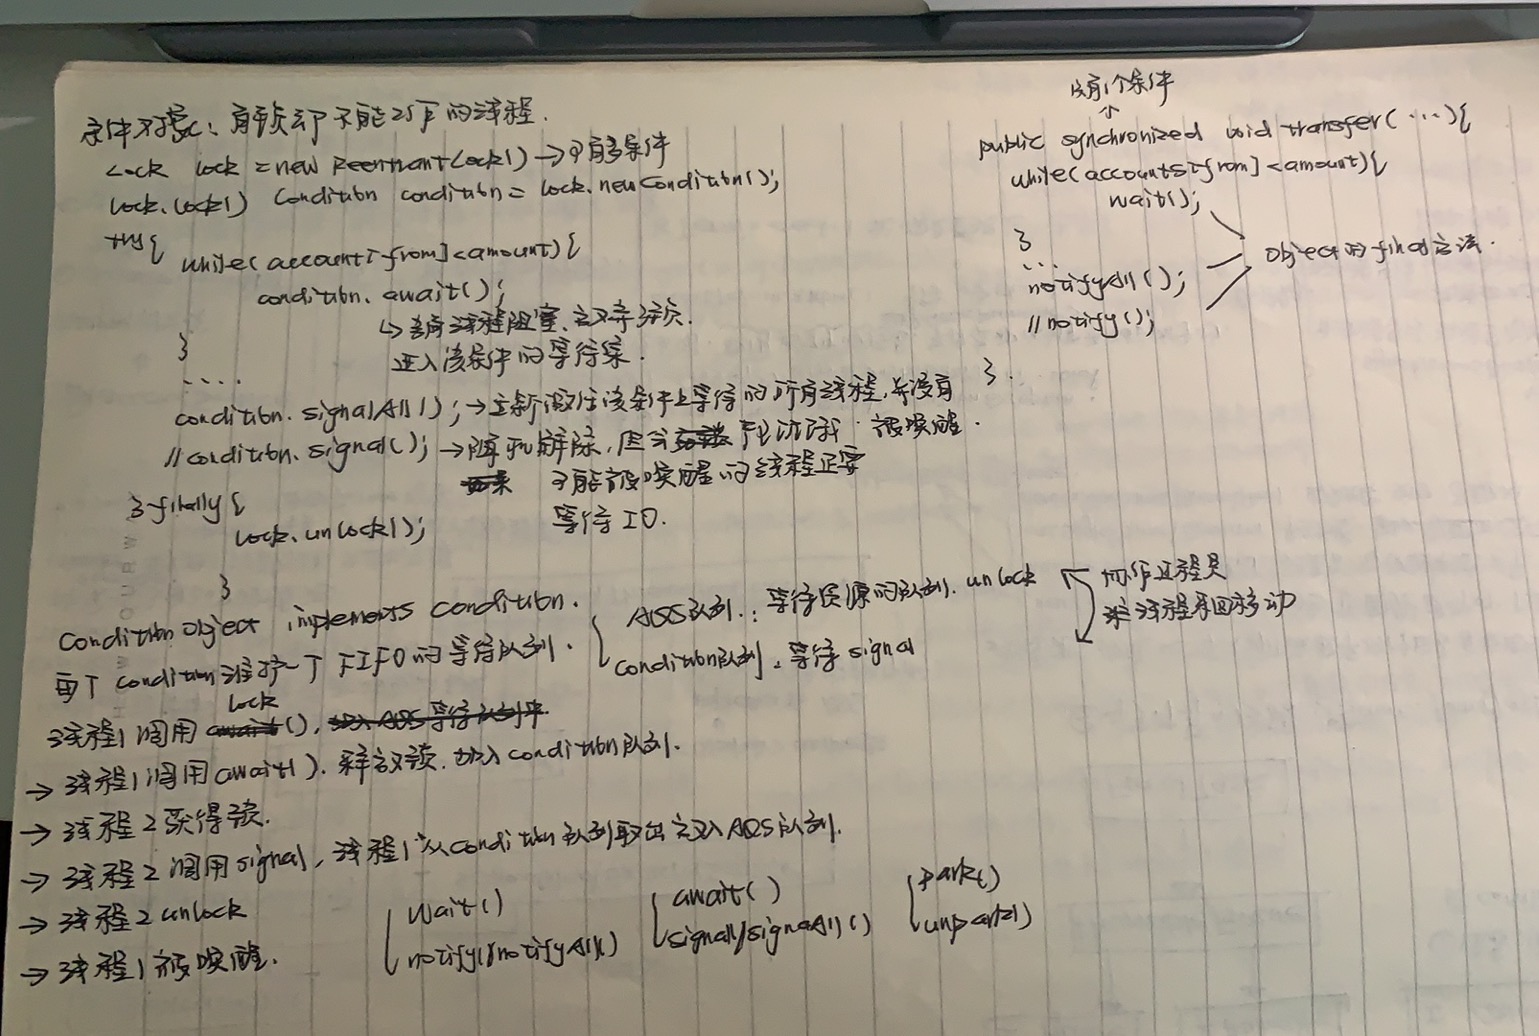 条件对象：有锁却不能工作的线程.
Lock lock = new ReentrantLock() → 可有多条件
lock.lock() Condition condition = lock.newCondition();
try{
while(account[from]<amount){
condition.await();
↳ 当前线程阻塞、放弃锁.
进入该条件的等待集.
}
....
condition.signalAll(); → 重新激活该条件上等待的所有线程,并没有被唤醒.
//condition.signal(); → 随机解除,但会
可能被唤醒的线程正要
等待IO.
}finally{
lock.unlock();
}
没有1个条件
↑
public synchronized void transfer(...){
while(accounts[from]<amount){
wait();
}
...
notifyAll();
//notify();
}.
Object的final方法.
ConditionObject implements condition.
每个condition维护一个FIFO的等待队列.
AQS队列.: 等待资源的队列. unlock
condition队列, 等待signal
协作过程是
线程来回移动
线程1调用lock(),
→ 线程1调用await(). 释放锁. 加入condition队列.
→ 线程2获得锁.
→ 线程2调用signal, 线程1从condition队列取出放入AQS队列.
→ 线程2 unlock
→ 线程1被唤醒.
wait()
notify()/notifyAll()
await()
signal/signalAll()
park()
unpark()